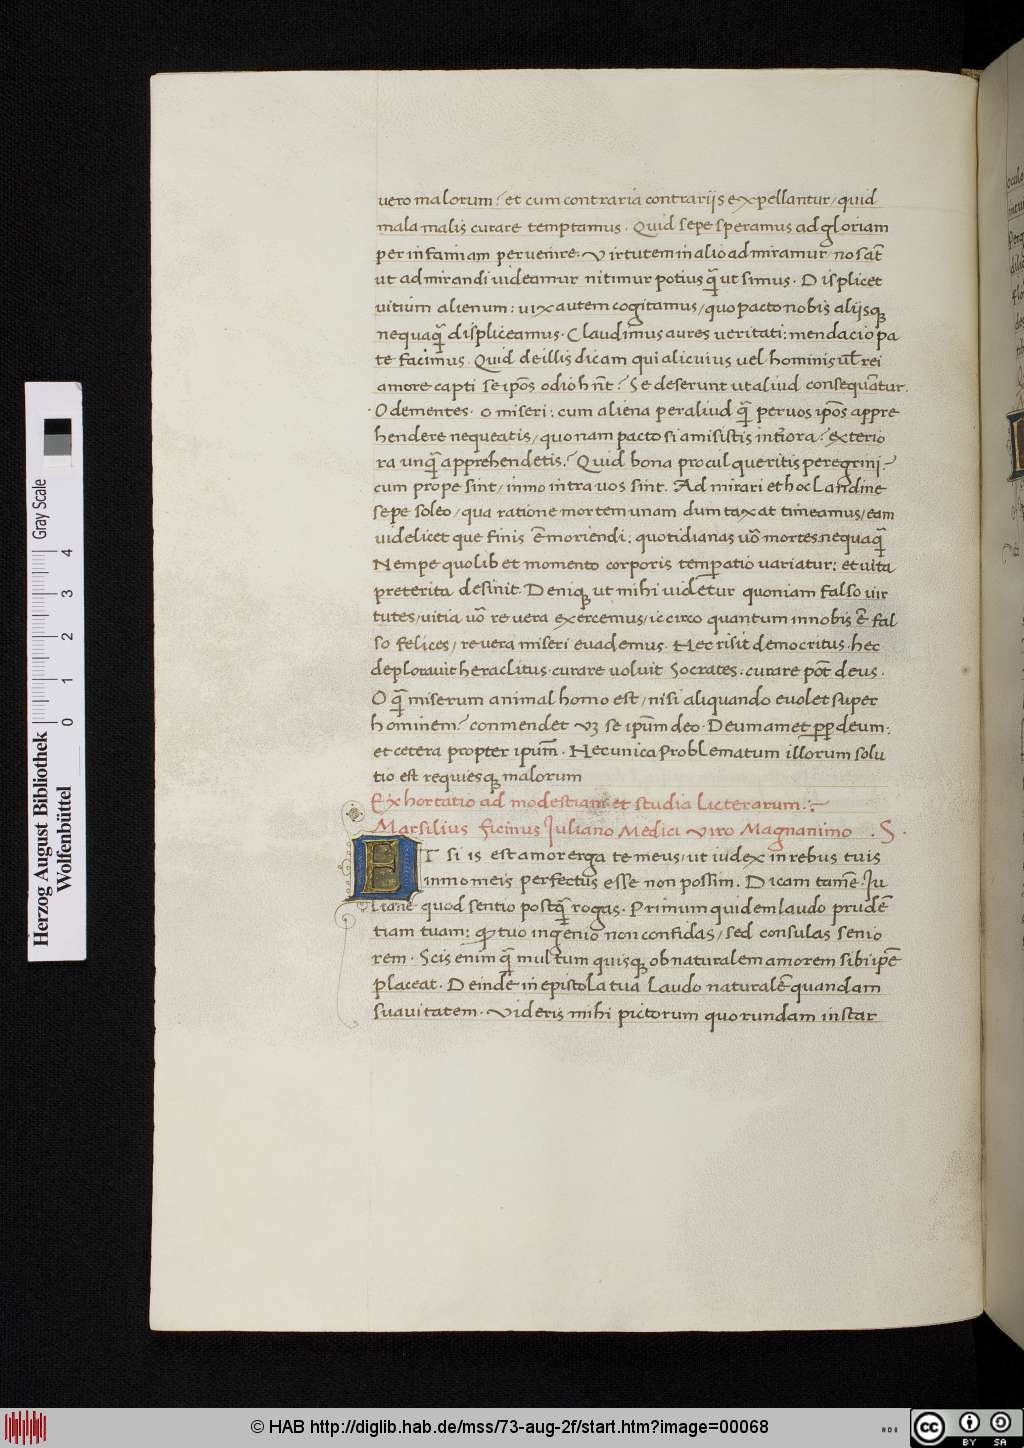 uero malorum? et cum contraria contrarijs expellantur/quid
mala malis curare temptamus. Quid sepe speramus ad gloriam
per infamiam peruenire: Virtutem in alio admiramur/ no sat̄
ut admirandi uideamur nitimur potius q̄ ut simus. Displicet
uitium alienum: uix autem cogitamus/quo pacto nobis alijsq;
nequaq̄ displiceamus. Claudimus aures ueritati: mendacio pa
te facimus. Quid de illis dicam qui alicuius uel hominis ul̄ rei
amore capti se ip̄os odio hn̄t? Se deserunt ut aliud consequātur.
O dementes. o miseri: cum aliena per aliud q̄ per uos ip̄os appre
hendere nequeatis/quo nam pacto si amisistis int̄iora? exterio
ra unq̄ apprehendetis? Quid bona procul queritis peregrini?
cum prope sint/inmo intra uos sint. Ad mirari et hoc Landine
sepe soleo/qua ratione mortem unam dum taxat timeamus/eam
uidelicet que finis ē moriendi: quotidianas uō mortes nequaq̄
Nempe quolibet momento corporis temperatio uariatur: et uita
preterita desinit. Deniq; ut mihi uidetur quoniam falso uir
tutes/uitia uō re uera exercemus/iccirco quantum in nobis ē fal
so felices/re uera miseri euademus. Hec risit democritus. hec
deplorauit heraclitus. curare uoluit Socrates: curare pōt deus.
O q̄ miserum animal homo est/nisi aliquando euolet super
hominem? conmendet vꝫ se ip̄um deo. Deum amet ꝓpꝑ deum:
et cetera propter ip̄um. Hec unica Problematum illorum solu
tio est requiesq; malorum
Exhortatio ad modestiam et studia Licterarum.
Marsilius ficinus Juliano Medici Viro Magnanimo . S .
ET si is est amor erga te meus/ut iudex in rebus tuis
inmo meis perfectus esse non possim. Dicam tam̄e Ju
liane quod sentio postq̄ rogas. Primum quidem laudo prudē
tiam tuam: ꝙ tuo ingenio non confidas/sed consulas senio
rem. Scis enim q̄ multum quisq; ob naturalem amorem sibi ip̄e
placeat. Deinde in epistola tua Laudo naturalē quandam
suauitatem. Videris mihi pictorum quorundam instar
Herzog August Bibliothek
Wolfenbüttel
Gray Scale
0 1 2 3 4
© HAB http://diglib.hab.de/mss/73-aug-2f/start.htm?image=00068
cc BY SA